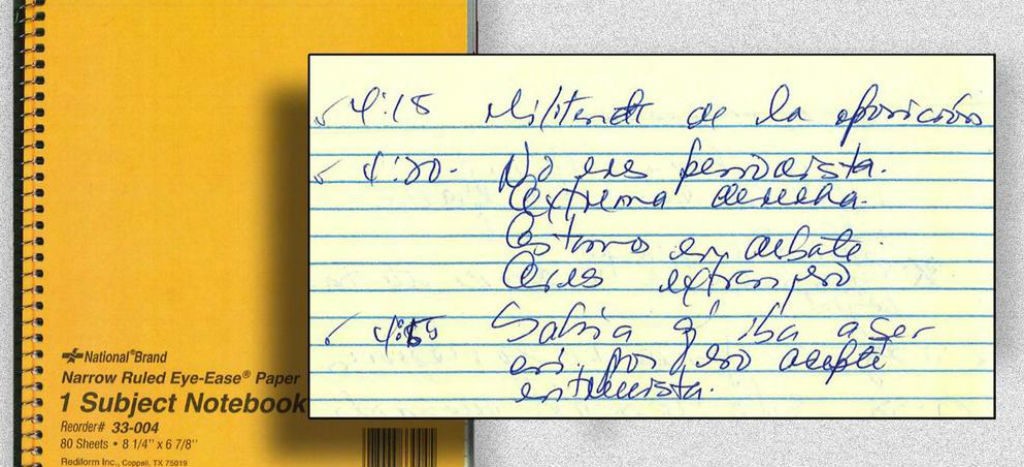 ✓ 4:15 Militante de la oposición
✓ 4:20. No eres periodista.
extrema derecha.
Estamos en debate.
Eres extranjero
✓ 4:55 Sabía q' iba a ser
así, por eso acepté
entrevista.
National®Brand
Narrow Ruled Eye-Ease® Paper
1 Subject Notebook
Reorder# 33-004
80 Sheets • 8 1/4" x 6 7/8"
Rediform Inc., Coppell, TX 75019